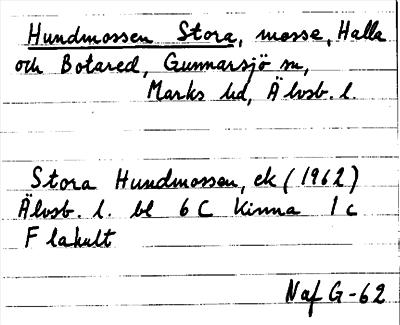 Hundmossen Stora, mosse, Halla
och Botared, Gunnarsjö sn,
Marks hd, Älvsb. l.
Stora Hundmossen, ek (1962)
Älvsb. l. bl 6C Kinna 1c
F lakult
Naf G-62